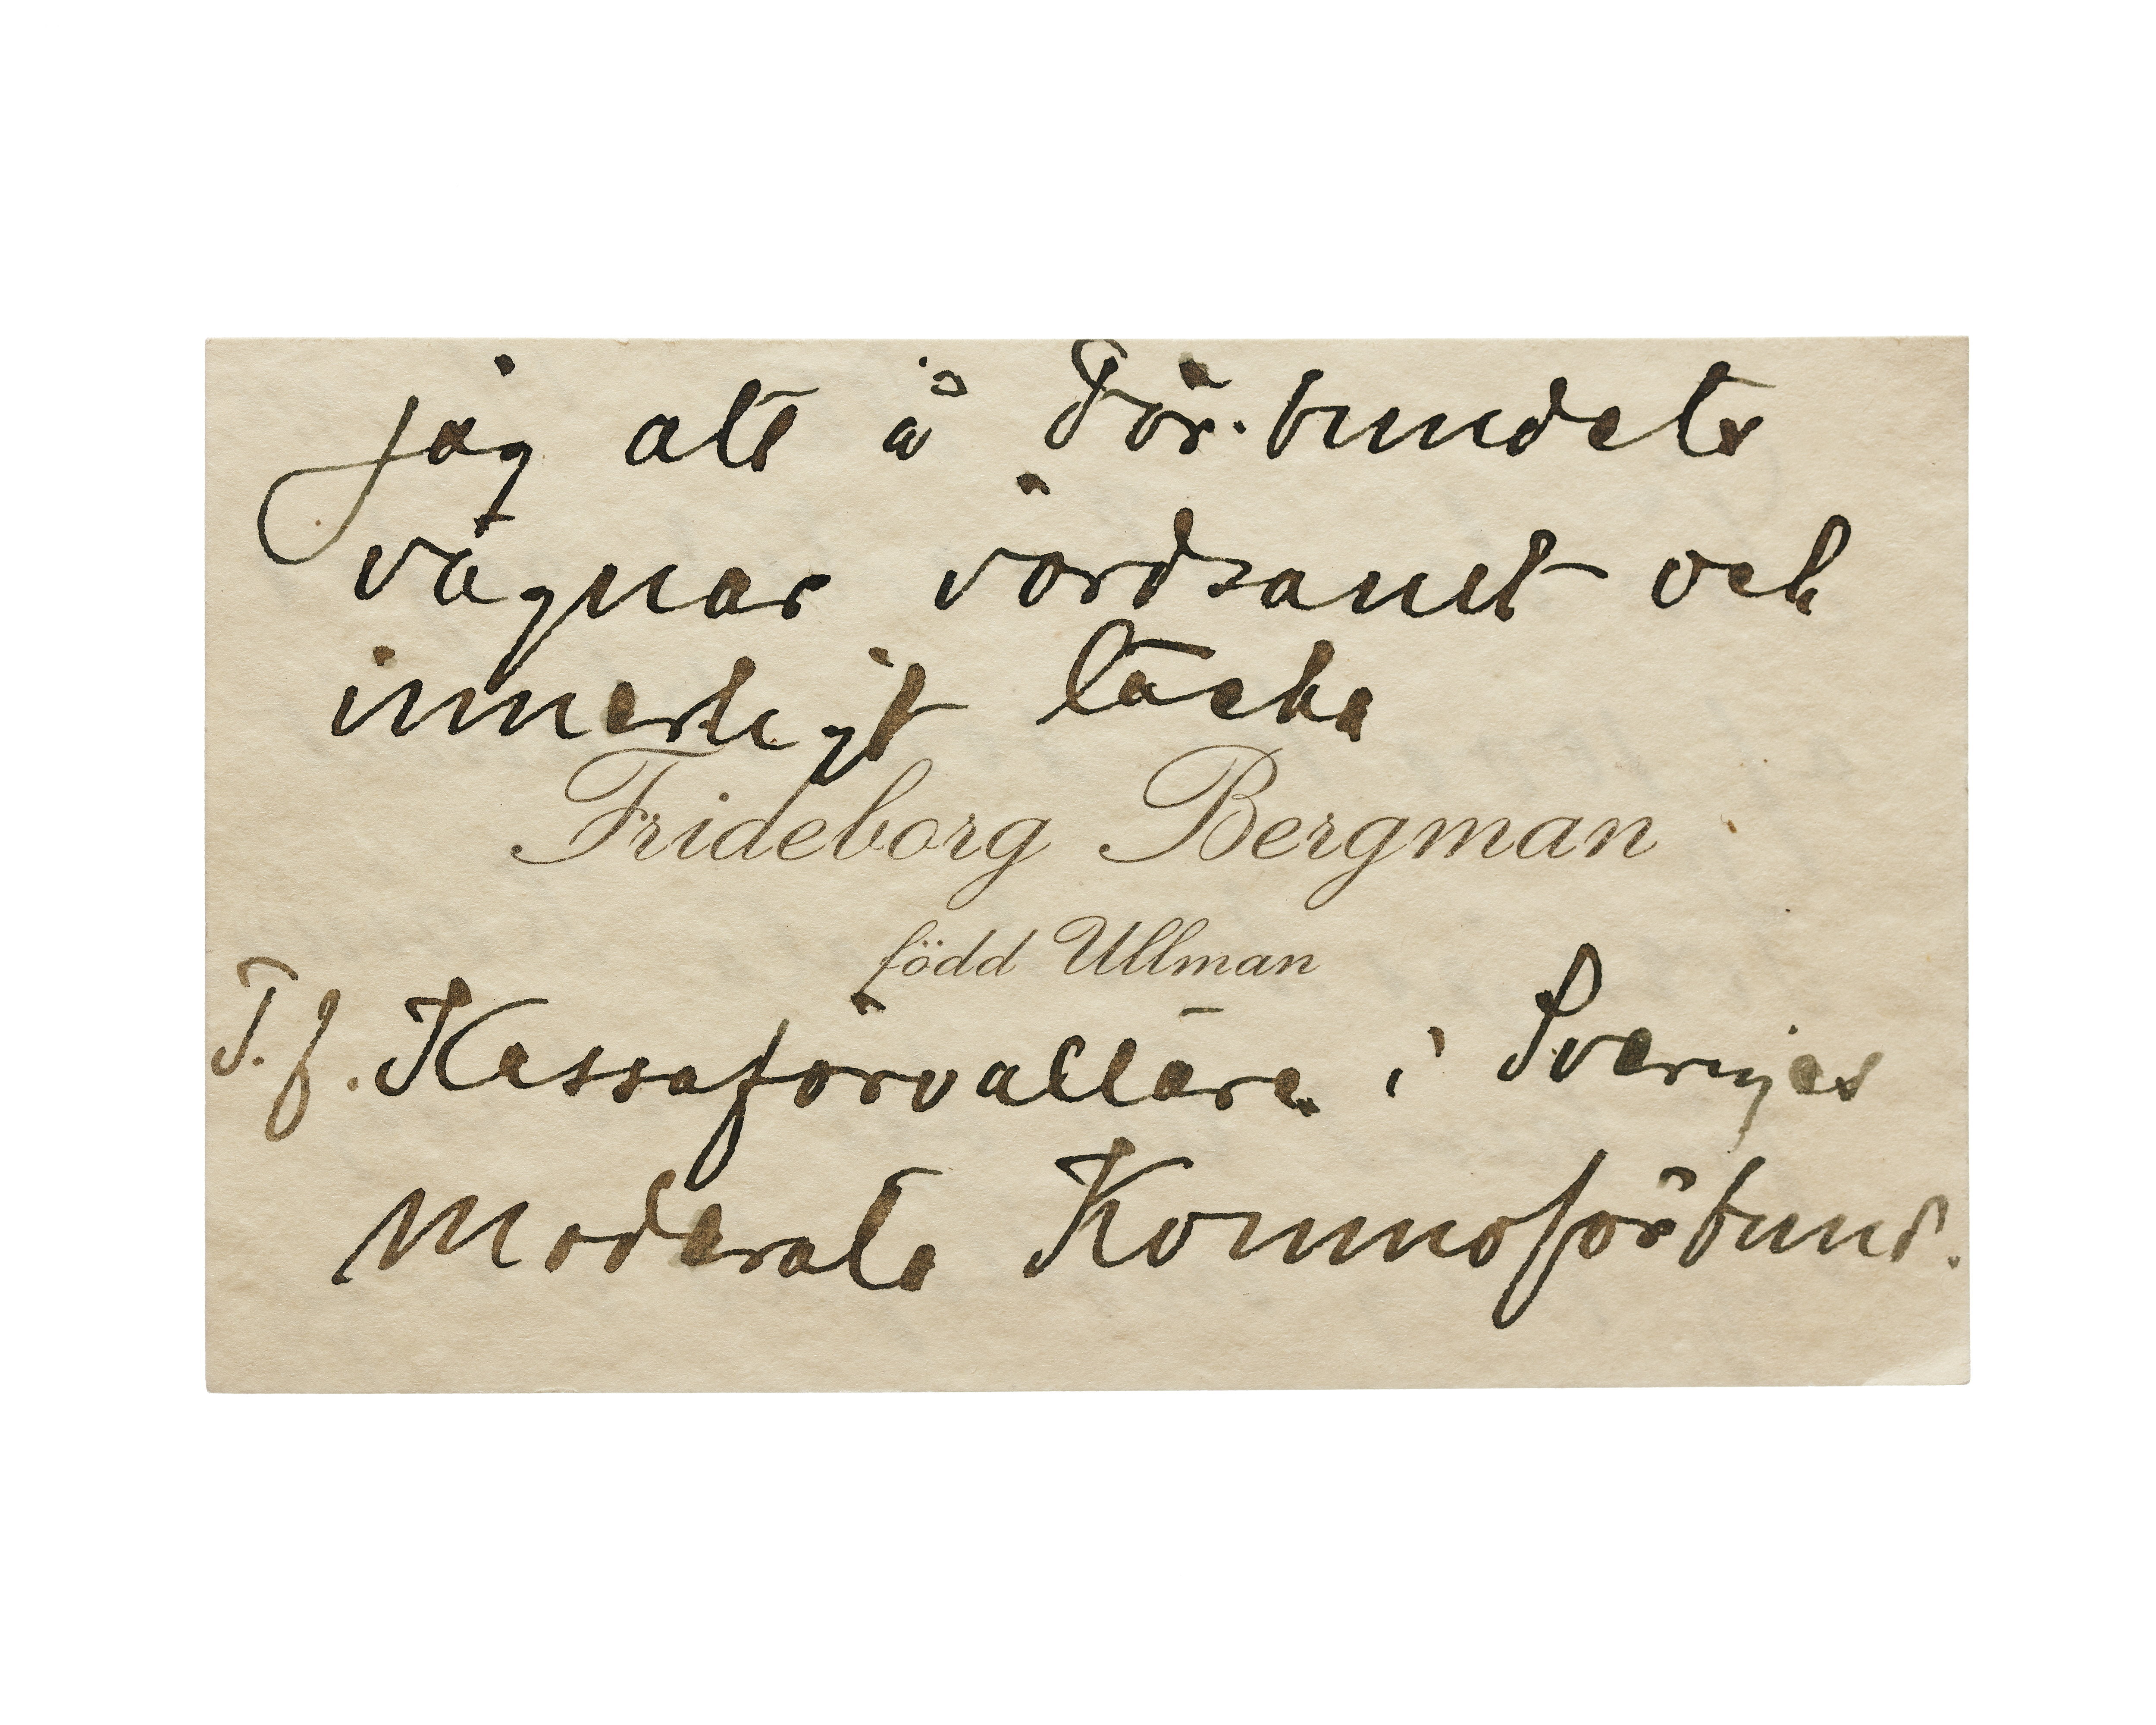 jag att å För.bundets
vägnar vördsamt och
innerligt tacka
Frideborg Bergman
född Ullman
T.f. Kassaförvaltare i Sveriges
Moderata Kvinnoförbund.